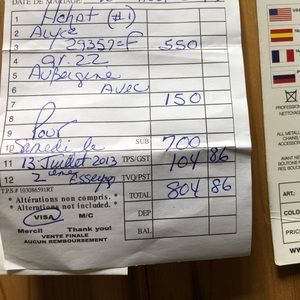 DATE DE MARIAGE
1 Achat (#1)
2 Alyce
3 29357=F 550
4 gr. 22
5 Aubergine
6 Avec
7 150
8
9 Pour
10 Samedi le SUB 700
11 13 Juillet 2013 TPS/GST 104 86
12 2ième Essayg TVQ/PST
T.P.S.# 103086591RT TOTAL 804 86
* Altérations non compris.
* Alterations not included. DEP
VISA M/C BAL
Merci! Thank you!
VENTE FINALE
AUCUN REMBOURSEMENT
NETTOYA
ALL METAL
AVANT NE
BOUTONS
ART:
COLO
PRICE
WW